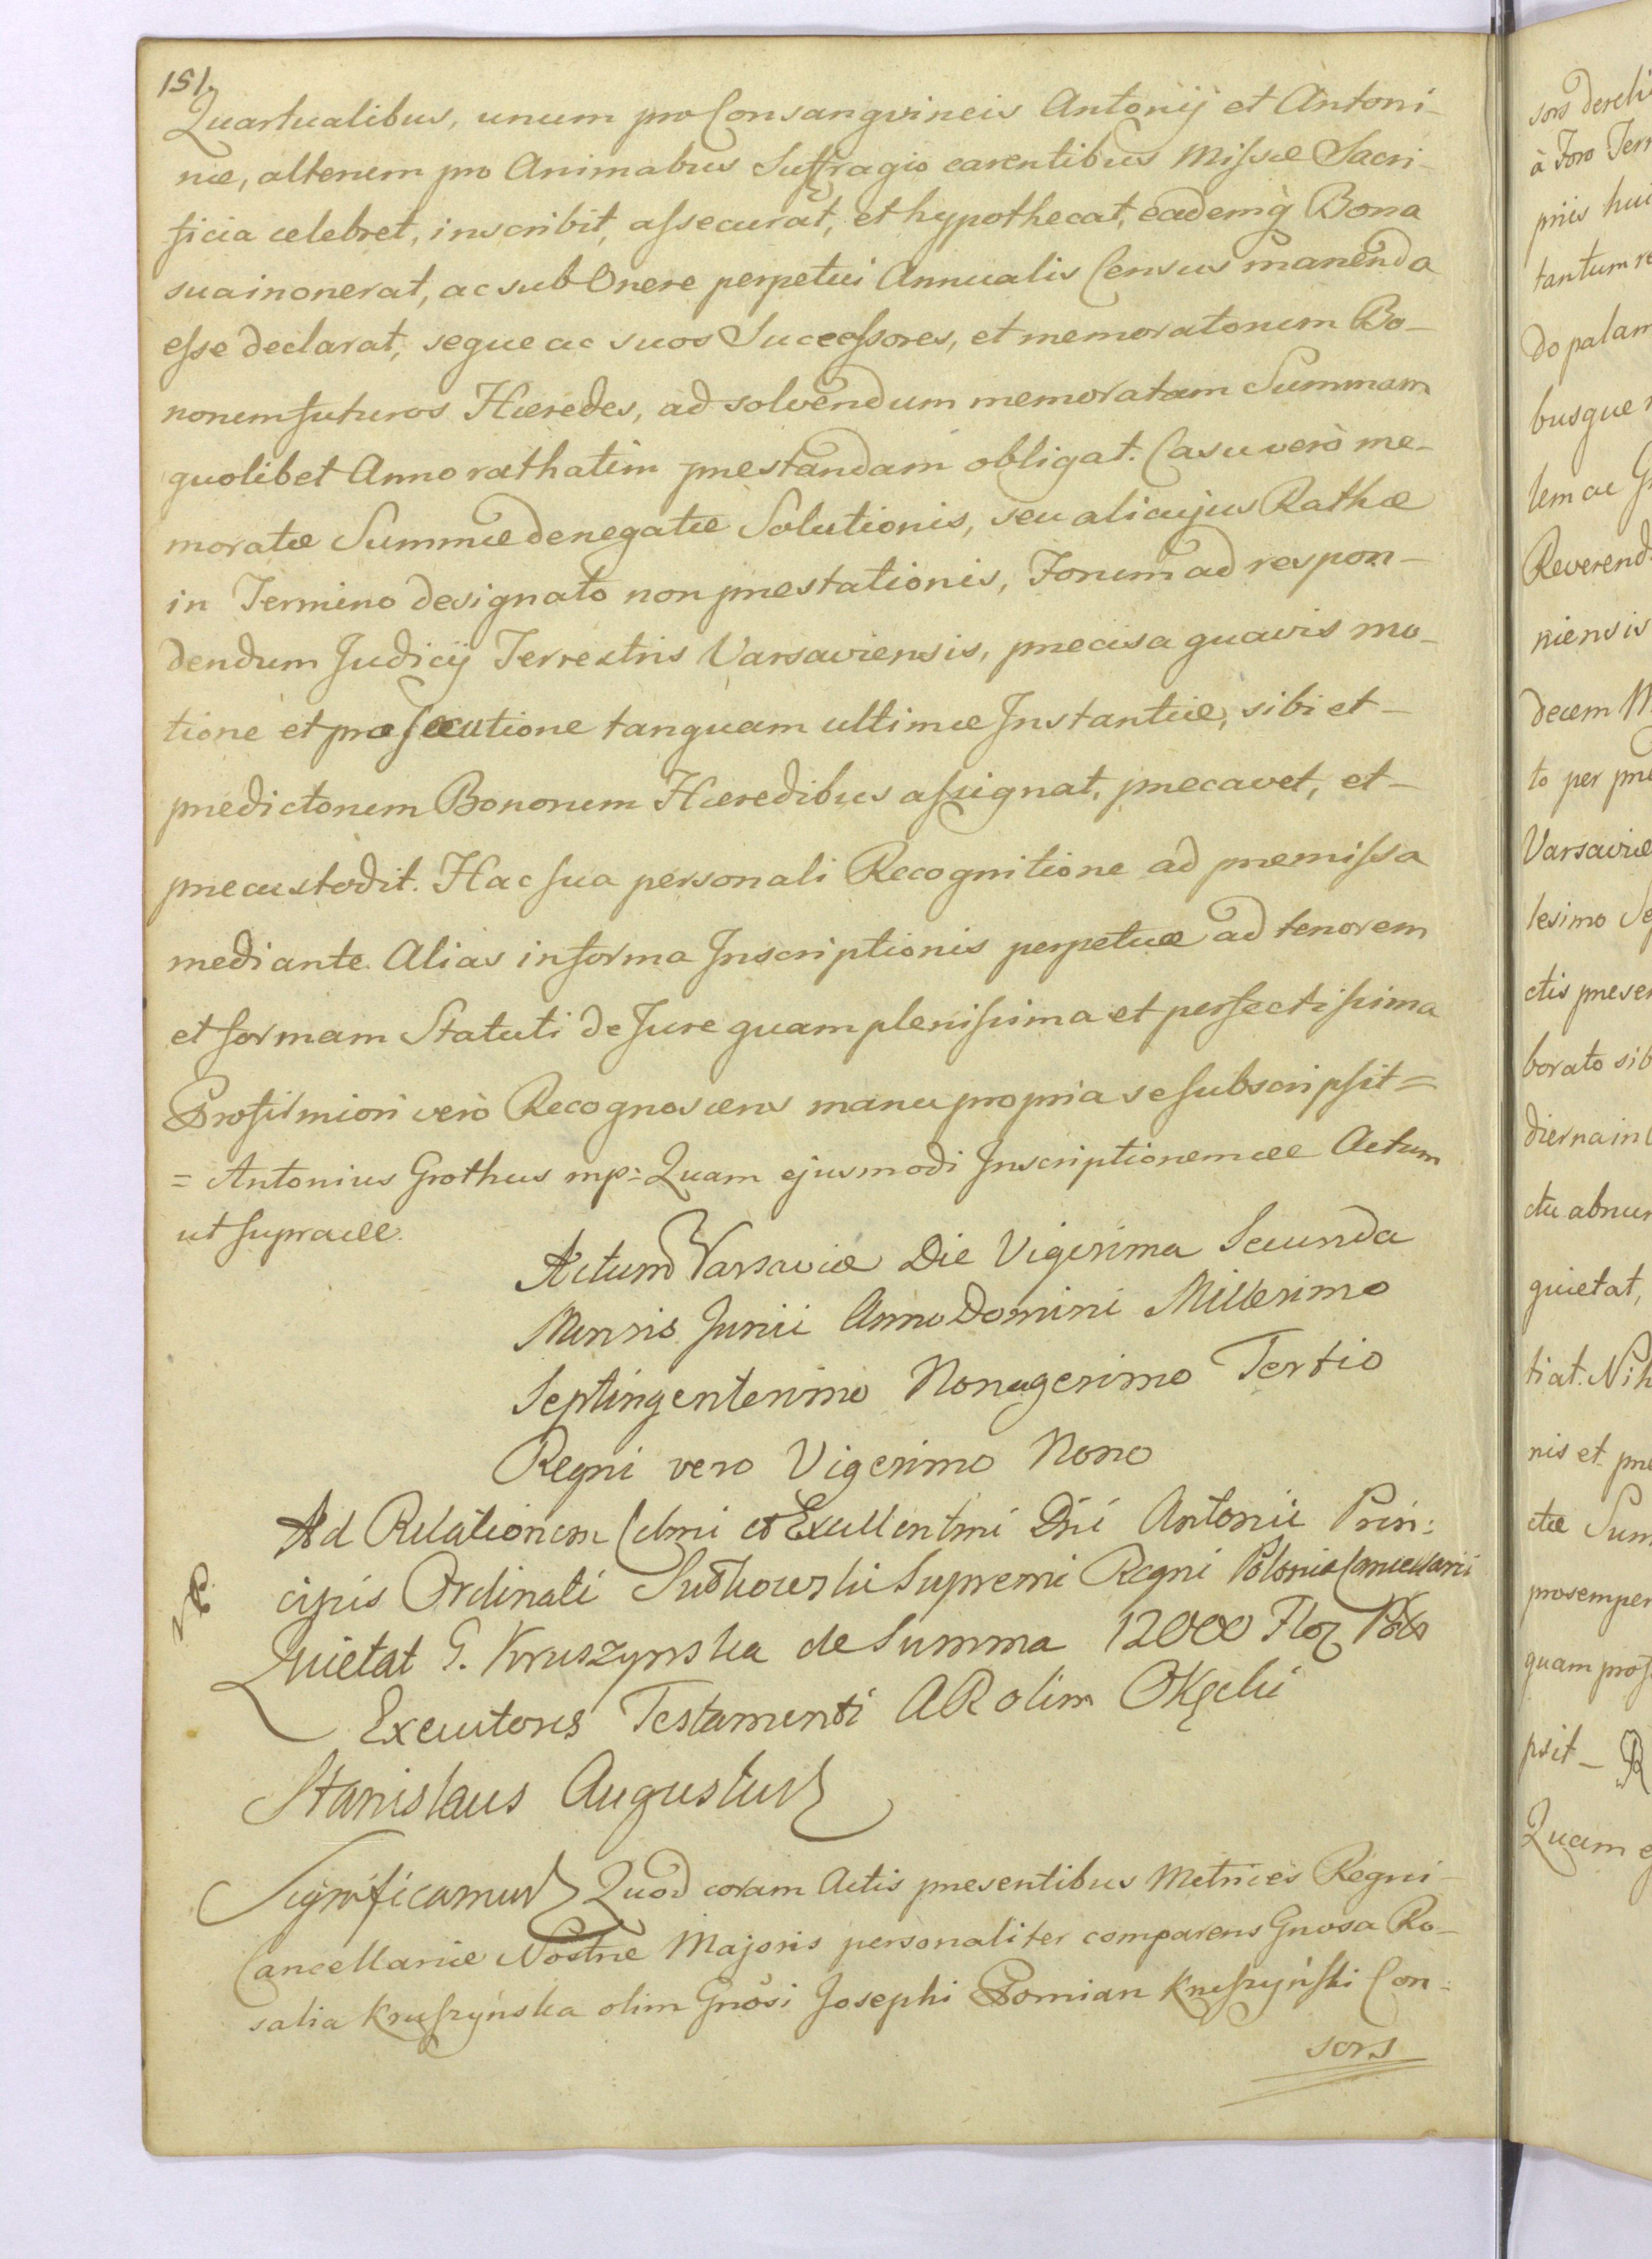 151.
Quartualibus, unum pro Consangvineis Antonij et Antoni-
næ, alterum pro Animabus Suffragio carentibus Missæ Sacri-
ficia celebret, inscribit, assecurat, et hypothecat, eademq̀ Bona
sua inonerat, ac sub Onere perpetui Annualis Census manenda
esse declarat, seque ac suos Successores, et memoratorum Bo-
norum futuros Hæredes, ad solvendum memoratam Summam
quolibet Anno rathatim præstandam obligat. Casu verò me-
moratæ Summæ denegatæ Solutionis, seu alicujus Rathæ
in Termino designato non præstationis, Forum ad respon-
dendum Judicij Terrestris Varsaviensis, præcisa quavis mo-
tione et prosecutione tanquam ultimæ Instantiæ, sibi et-
prædictorum Bonorum Hæredibus assignat, præcavet, et-
præcustodit. Hac sua personali Recognitione ad præmissa
mediante. Alias in forma Inscriptionis perpetuæ ad tenorem
et formam Statuti de Jure quam plenissima et perfectissima
Pro firmiori verò Recognoscens manu propria se subscripsit =
= Antonius Grothus mp: Quam ejusmodi Inscriptionem &c Actum
ut supra &c.
Actum Varsaviæ Die Vigesima Secunda
Mensis Junii Anno Domini Millesimo
Septingentesimo Nonagesimo Tertio
Regni vero Vigesimo Nono
Ad Relationem Celsmi et Excellentmi Dni Antonii Prin:
cipis Ordinati Sułkowski Supremi Regni Poloniæ Cancellarii
Quietat G. Kruszynska de Summa 12000 Flor Pols
Executores Testamenti AR olim Okęcki
Stanislaus Augustus
Significamus Quod coram Actis præsentibus Metrices Regni-
Cancellariæ Nostræ Majoris personaliter comparens Gnosa Ro-
salia Kruszyńska olim Gnosi Josephi Pomian Kruszyński Con:
sors